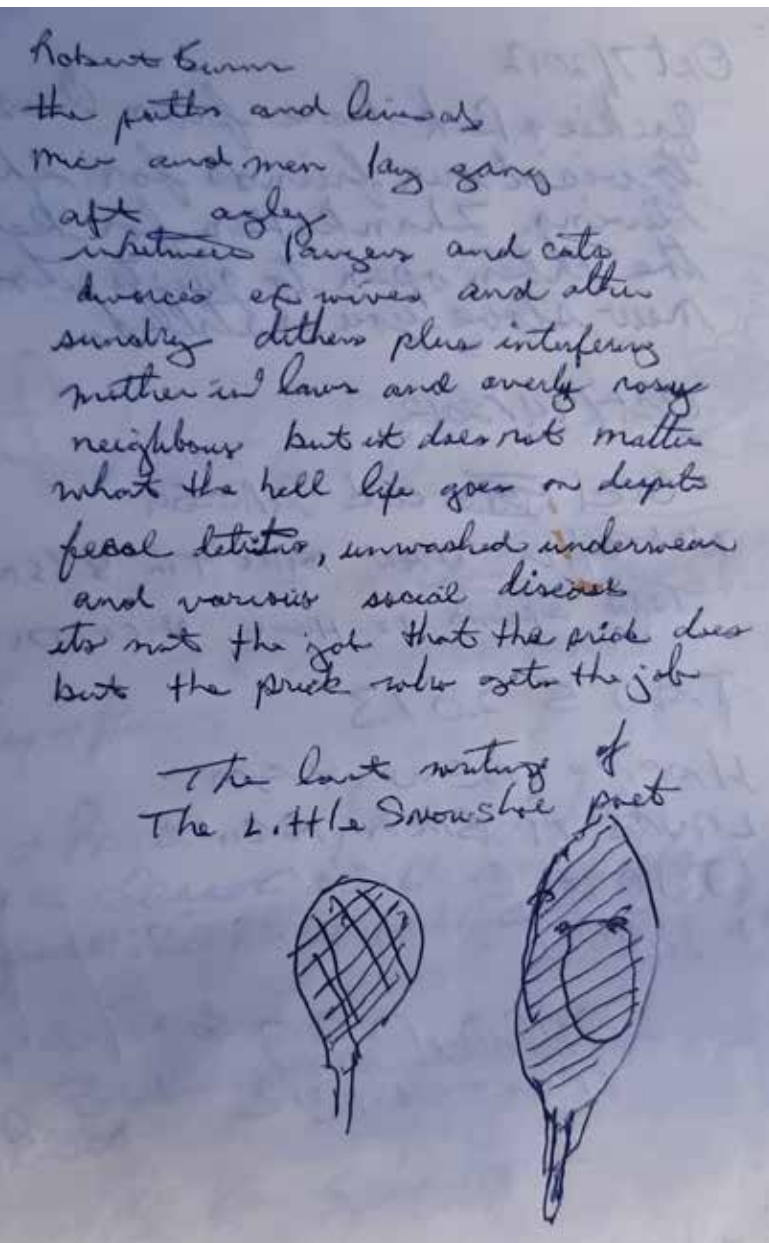 Robert Burns
the paths and lives of
mice and men lay gang
aft agley
whitmen and cats
divorces ex wives and other
sundry dithers plus interfering
mother in laws and overly nosy
neighbours but it does not matter
what the hell life goes on despite
fecal detritus, unwashed underwear
and various social disease
its not the job that the prick does
but the prick who gets the job
The last writing of
The Little Snowshoe poet